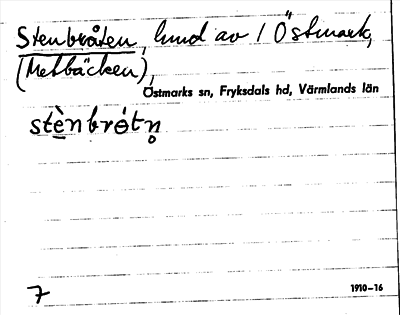 Stenbråten, hmd av 1 Östmark,
(Metbäcken),
Östmarks sn, Fryksdals hd, Värmlands län
stènbrótn̥
7
1910-16